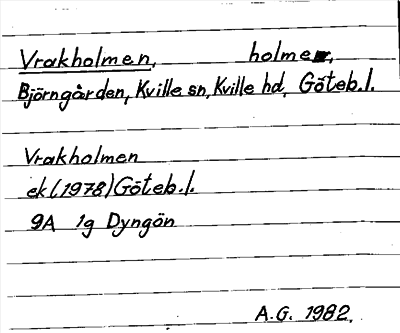 Vrakholmen, holme,
Björngården, Kville sn, Kville hd, Göteb.l.
Vrakholmen
ek (1978) Göteb.l.
9A 1g Dyngön
A.G. 1982.